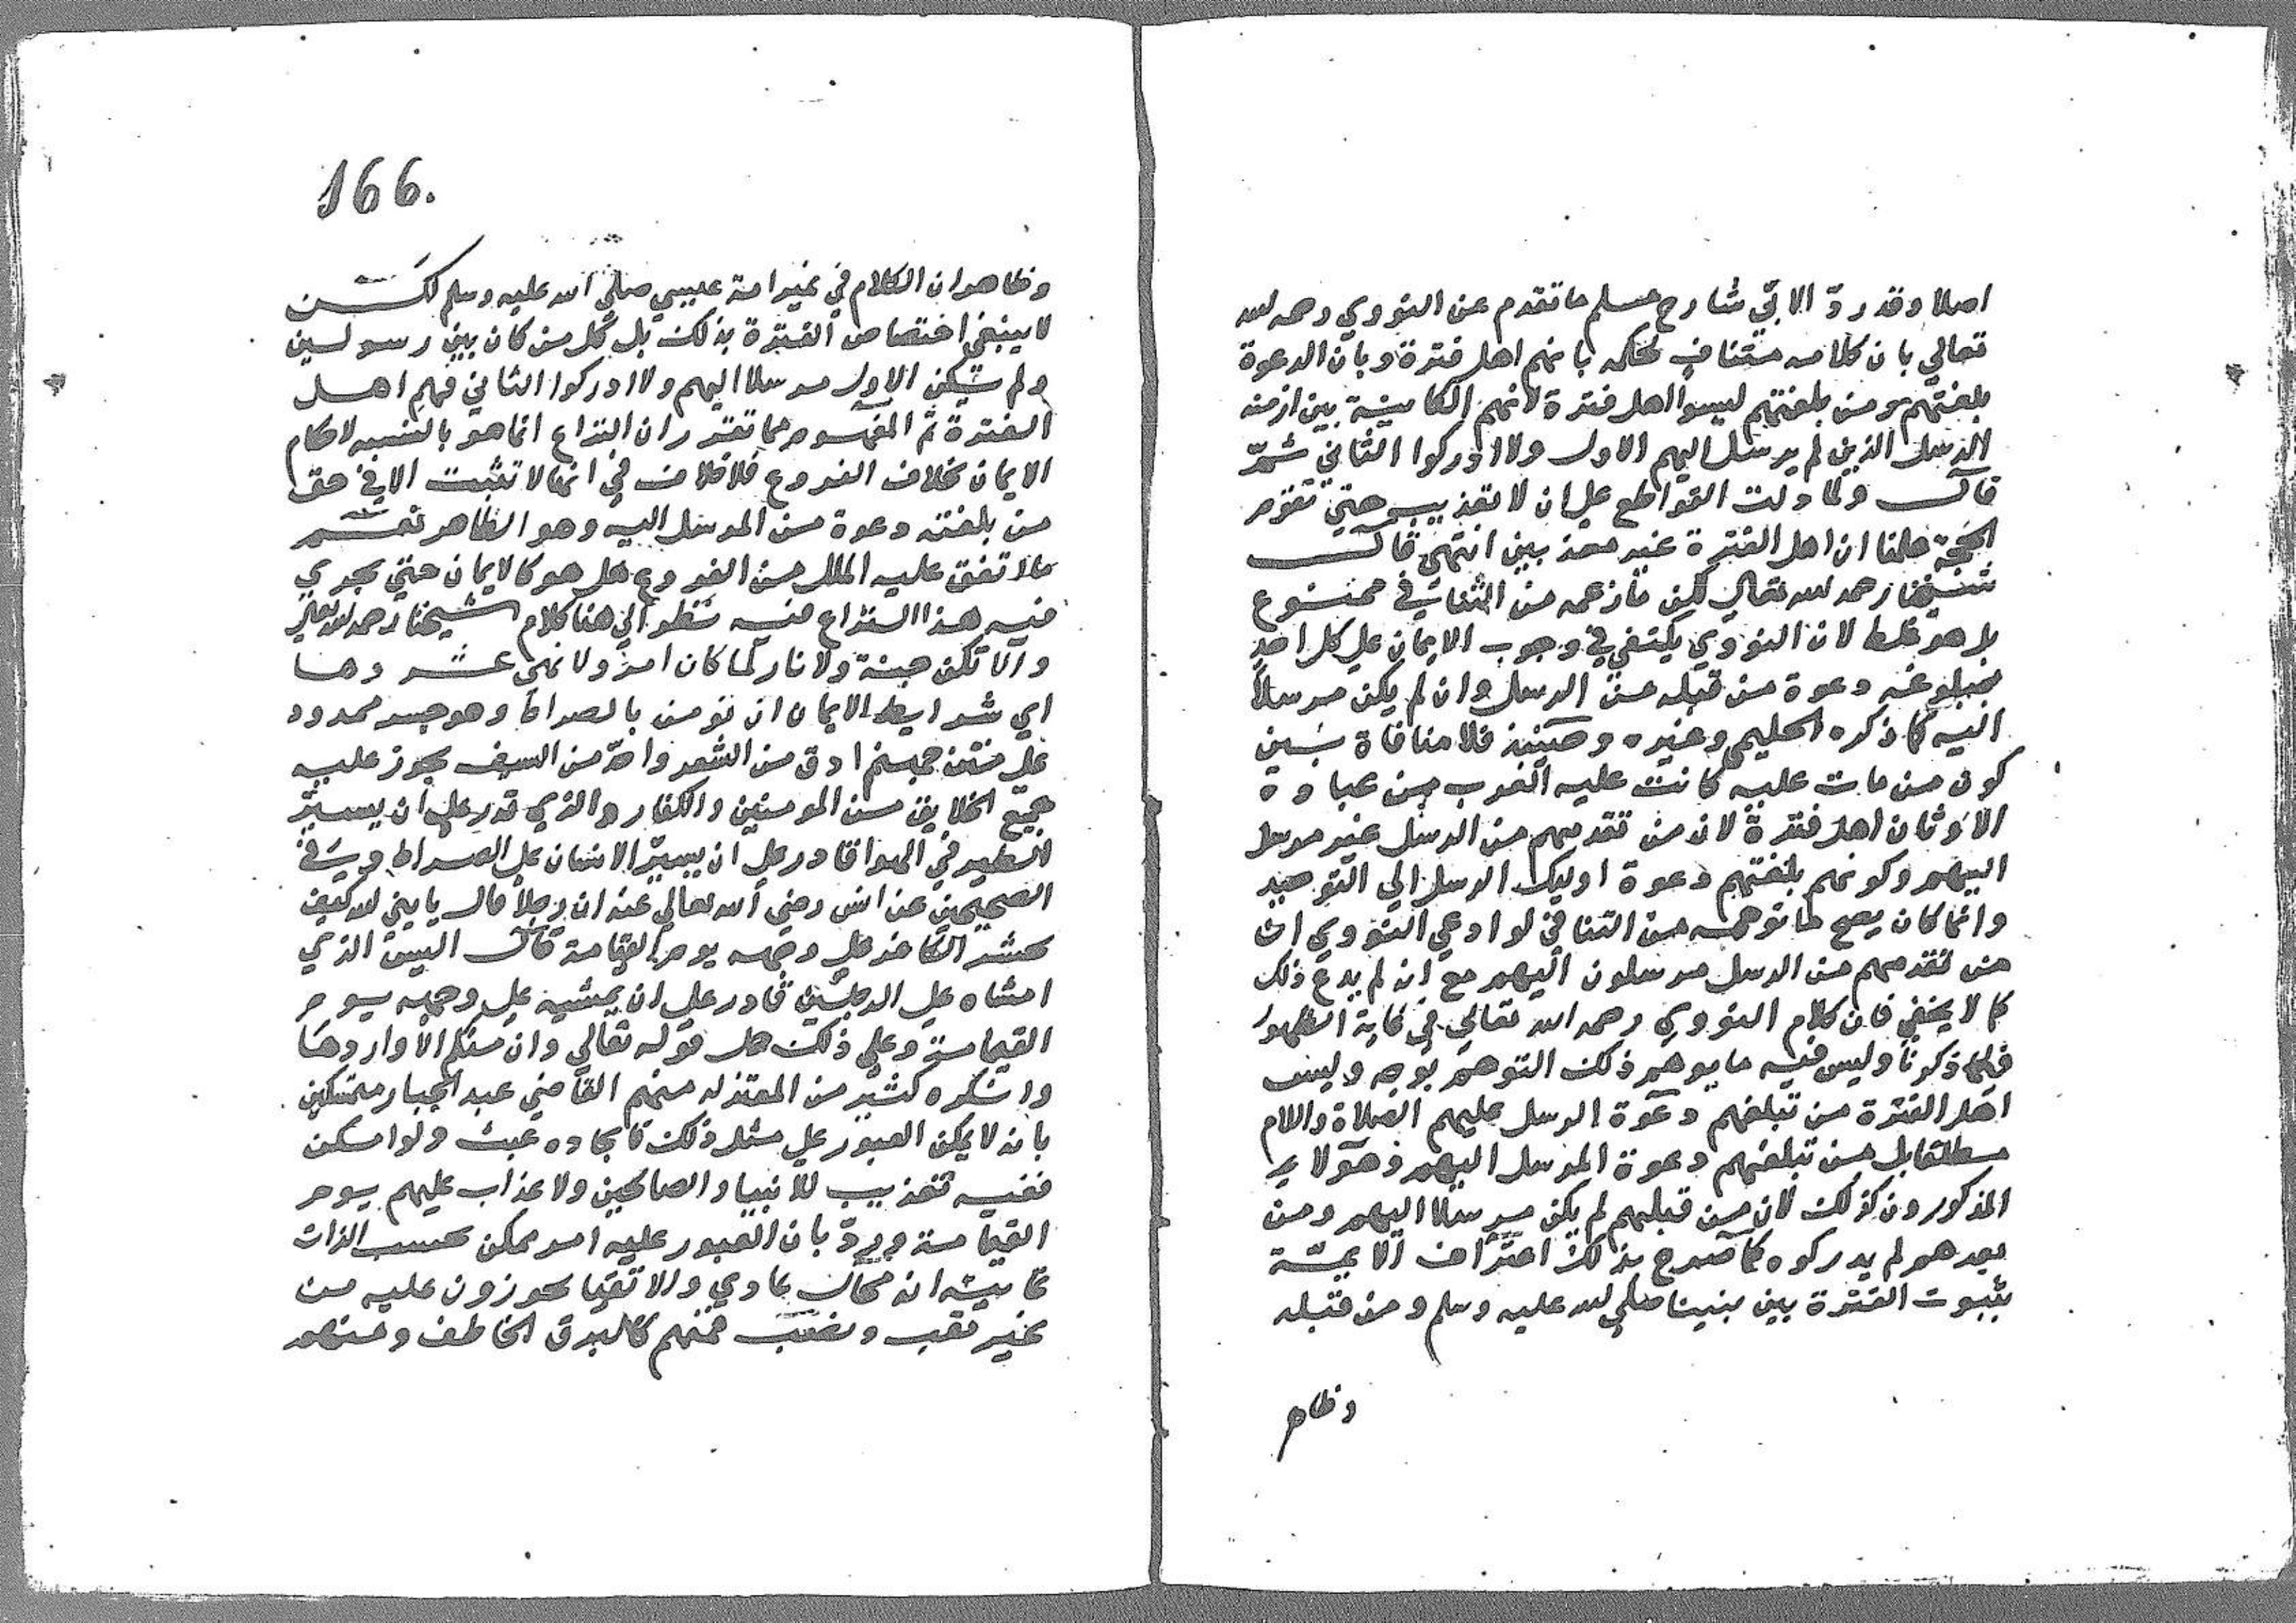 اصلا وقد ردّ الابّي شارح مسلم ما تقدم عن النووي رحمه الله
تعالي بان كلامه متناف لحكمه بانهم اهل فترة وبان الدعوة
بلغتهم ومن بلغتهم ليسوا اهل فترة لانهم الكاينة بين ازمنة
الرسل الذين لم يرسل اليهم الاول ولا ادركوا الثاني ثمّ
قال ولما دلت القواطع علي ان لا تعذيب حتي تقوم
الحجة علمنا ان اهل الفترة غير معذبين انتهي قال
شيخنا رحمه الله تعالي لكن ما زعمه من التنافي ممنوع
بل هو غلط لان النووي يكتفي في وجوب الايمان علي كل احد
ببلوغه دعوة من قبله من الرسل وان لم يكن مرسلاً
اليه كما ذكره الحليمي وغيره وحينئذ فلا منافاة بين
كون من مات عليه كانت عليه العرب من عبادة
الاوثان اهل فترة لان من تقدمهم من الرسل غير مرسل
اليهم وكونهم بلغتهم دعوة اوليك الرسل الي التوحيد
وانما كان يصح ما توهمه من التنافي لو ادعي النووي ان
من تقدمهم من الرسل مرسلون اليهم مع انه لم يدع ذلك
كما لا يخفي فان كلام النووي رحمه الله تعالي في غاية الظهور
فيما ذكرنا وليس فيه ما يوهم ذلك التوهم بوجه وليس
اهل الفترة من تبلغهم دعوة الرسل عليهم الصلاة والسلام
مطلقا بل من تبلغهم دعوة المرسل اليهم وهولاء
المذكورون كذلك لان من قبلهم لم يكن مرسلا اليهم ومن
بعدهم لم يدركوه كما صرح بذلك اعتراف الايمّة
بثبوت الفترة بين نبينا صلي الله عليه وسلم ومن قبله
وظاهر
166.
وظاهر ان الكلام في غير امة عيسي صلي الله عليه وسلم لكن
لا ينبغي اختصاص الفترة بذلك بل كل من كان بين رسولين
ولم يكن الاول مرسلا اليهم ولا ادركوا الثاني فهم اهل
الفترة ثم المفهوم مما تقرر ان النزاع انما هو بالنسبه لاحكام
الايمان بخلاف الفروع فلا خلاف في انها لا تثبت الا في حق
من بلغته دعوة من المرسل اليه وهو الظاهر نعم
ما لا تفق عليه الملل من الفروع هل هو كالايمان حتي يجري
فيه هذا النزاع فيه نظر الي هنا كلام شيخنا رحمه الله تعالي
والا تكن جنة ولا نار لما كان امر ولا نهي عشر وها
اي شرايط الايمان ان نومن بالصراط وهو جسر ممدود
علي متن جهنم ادق من الشعر واحدّ من السيف يجوز عليه
جميع الخلايق من المومنين والكفار والذي قدر علي ان يسيّر
الطير في الهوا قادر علي ان يسيّر الانسان علي الصراط وفي
الصحيحين عن انس رضي الله تعالي عنه ان رجلاً قال يا نبي الله كيف
يحشر الكافر علي وجهه يوم القيامة قال اليس الذي
امشاه علي الرجلين قادر علي ان يمشيه علي وجهه يوم
القيامة وعلي ذلك حمل قوله تعالي وان منكم الا واردها
وانكره كثير من المعتزله منهم القاضي عبد الجبار متمسكين
بانه لا يمكن العبور علي مثل ذلك فايجاده عبث ولو امكن
ففيه تعذيب للانبيا والصالحين ولا عذاب عليهم يوم
القيامة وردّ بان العبور عليه امر ممكن بحسب الذات
غايته انه محال عادي والاتقيا يجوزون عليه من
غير تعب ونصب فمنهم كالبرق الخاطف ومنهم